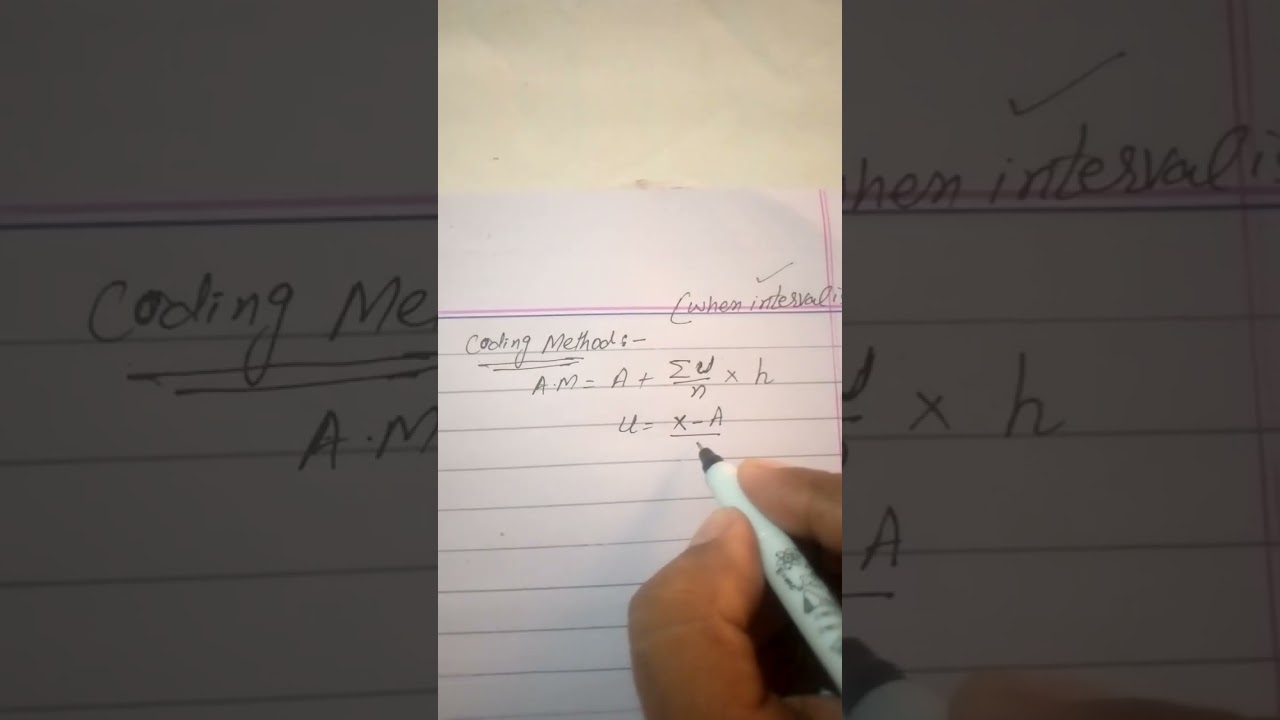 (when interval i
Coding Methods:-
A.M = A + Σu/n × h
u = x - A